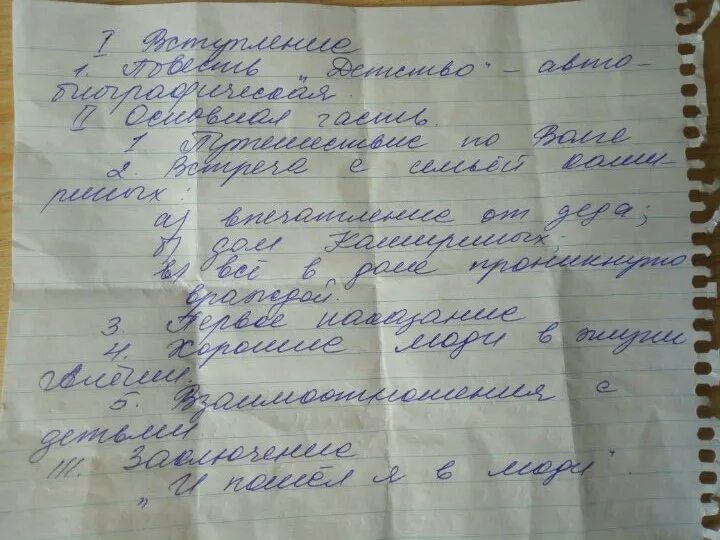 I Вступление
1. Повесть "Детство" – авто-
биографическая.
II Основная часть.
1 Путешествие по Волге
2. Встреча с семьёй Каши-
риных:
а) впечатление от деда;
б) дом Кашириных;
в) всё в доме проникнуто
враждой.
3. Первое наказание
4. Хорошие люди в жизни
Алёши
5. Взаимоотношения с
детьми
III. Заключение
„И пошёл я в люди".